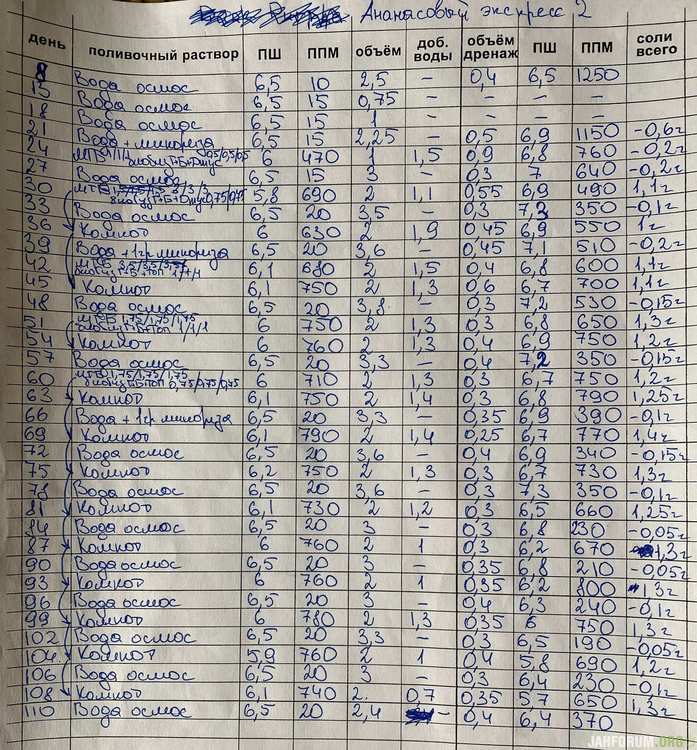 Ананасовый экспресс 2
день поливочный раствор ПШ ППМ объём доб. воды объём дренаж ПШ ППМ соли всего
8 Вода осмос 6,5 10 2,5 – 0,4 6,5 1250
13 Вода осмос 6,5 15 0,75 – – – –
18 Вода осмос 6,5 15 1 – – – –
21 Вода + микориза 6,5 15 2,25 – 0,5 6,9 1150 -0,6г
24 6 470 1 1,5 0,9 6,8 760 -0,2г
27 Вода осмос 6,5 15 3 – 0,3 7 640 -0,2г
30 5,8 690 2 1,1 0,55 6,9 490 1,1г
33 Вода осмос 6,5 20 3,5 – 0,3 7,3 350 -0,1г
36 Компот 6 630 2 1,9 0,45 6,9 550 1г
39 Вода + 1гр микориза 6,5 20 3,6 – 0,45 7,1 510 -0,2г
42 6,1 680 2 1,5 0,4 6,8 600 1,1г
45 Компот 6,1 750 2 1,3 0,6 6,7 700 1,1г
48 Вода осмос 6,5 20 3,8 – 0,3 7,2 530 -0,15г
51 6 750 2 1,3 0,3 6,8 650 1,3г
54 Компот 6 760 2 1,3 0,4 6,9 750 1,2г
57 Вода осмос 6,5 20 3,3 – 0,4 7,2 350 -0,15г
60 6 710 2 1,3 0,3 6,7 750 1,2г
63 Компот 6,1 750 2 1,4 0,3 6,8 790 1,25г
66 Вода + 1гр микориза 6,5 20 3,3 – 0,35 6,9 390 -0,1г
69 Компот 6,1 790 2 1,4 0,25 6,7 770 1,4г
72 Вода осмос 6,5 20 3,6 – 0,4 6,9 340 -0,15г
75 Компот 6,2 750 2 1,3 0,3 6,7 730 1,3г
78 Вода осмос 6,5 20 3,6 – 0,3 7,3 350 -0,1г
81 Компот 6,1 730 2 1,2 0,3 6,5 660 1,25г
84 Вода осмос 6,5 20 3 – 0,3 6,8 230 -0,05г
87 Компот 6 760 2 1 0,3 6,2 670 1,3г
90 Вода осмос 6,5 20 3 – 0,35 6,8 210 -0,05г
93 Компот 6 760 2 1 0,35 6,2 800 1,3г
96 Вода осмос 6,5 20 3 – 0,4 6,3 240 -0,1г
99 Компот 6 780 2 1,3 0,35 6 750 1,3г
102 Вода осмос 6,5 20 3,3 – 0,3 6,5 190 -0,05г
104 Компот 5,9 760 2 1 0,4 5,8 690 1,2г
106 Вода осмос 6,5 20 3 – 0,3 6,4 230 -0,1г
108 Компот 6,1 740 2 0,7 0,35 5,7 650 1,3г
110 Вода осмос 6,5 20 2,4 – 0,4 6,4 370
JAHFORUM.ORG